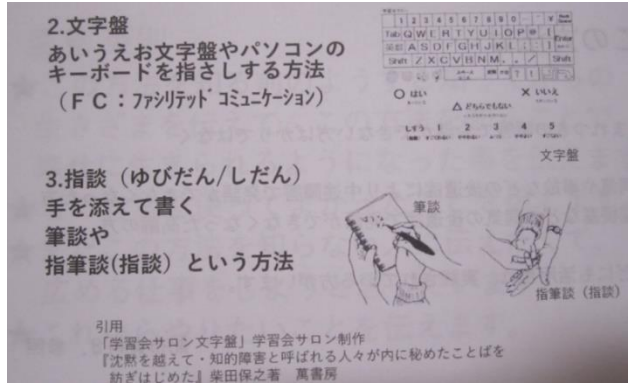 2.文字盤
あいうえお文字盤やパソコンの
キーボードを指さしする方法
(FC:ファシリテッド コミュニケーション)
1 2 3 4 5 6 7 8 9 0
Tab Q W E R T Y U I O P @ [
A S D F G H J K L ; : ]
Shift Z X C V B N M , . / Shift
○ はい
× いいえ
△ どちらでもない
しすう 1 2 3 4 5
文字盤
3.指談(ゆびだん/しだん)
手を添えて書く
筆談や
指筆談(指談)という方法
筆談
指筆談(指談)
引用
「学習会サロン文字盤」学習会サロン制作
『沈黙を越えて・知的障害と呼ばれる人々が内に秘めたことばを
紡ぎはじめた』柴田保之著 萬書房